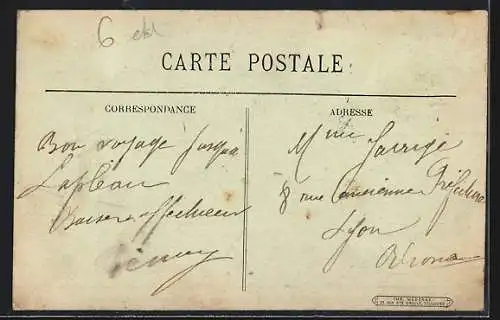 6
CARTE POSTALE
CORRESPONDANCE
Bon voyage jusqu'à
Lapleau
Baisers affectueux
ADRESSE
Mme Jarrige
8 rue ancienne Préfecture
Lyon
Rhone